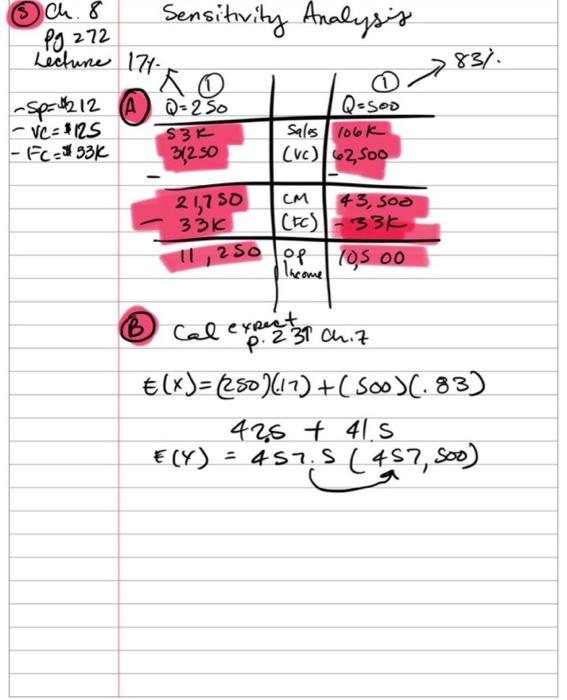 5 Ch. 8 Sensitivity Analysis
Pg 272
Lecture 17%. 83%.
① ①
- SP=$212 A Q=250 Q=500
- VC=$125 53K Sales 106K
- FC=$33K 31,250 (VC) 62,500
-  -
21,750 CM 43,500
- 33K (FC) - 33K
11,250 op Income 10,500
B Cal expect
p. 231 Ch.7
E(X)=(250)(.17)+(500)(.83)
42.5 + 41.5
E(Y) = 457.5 (457,500)